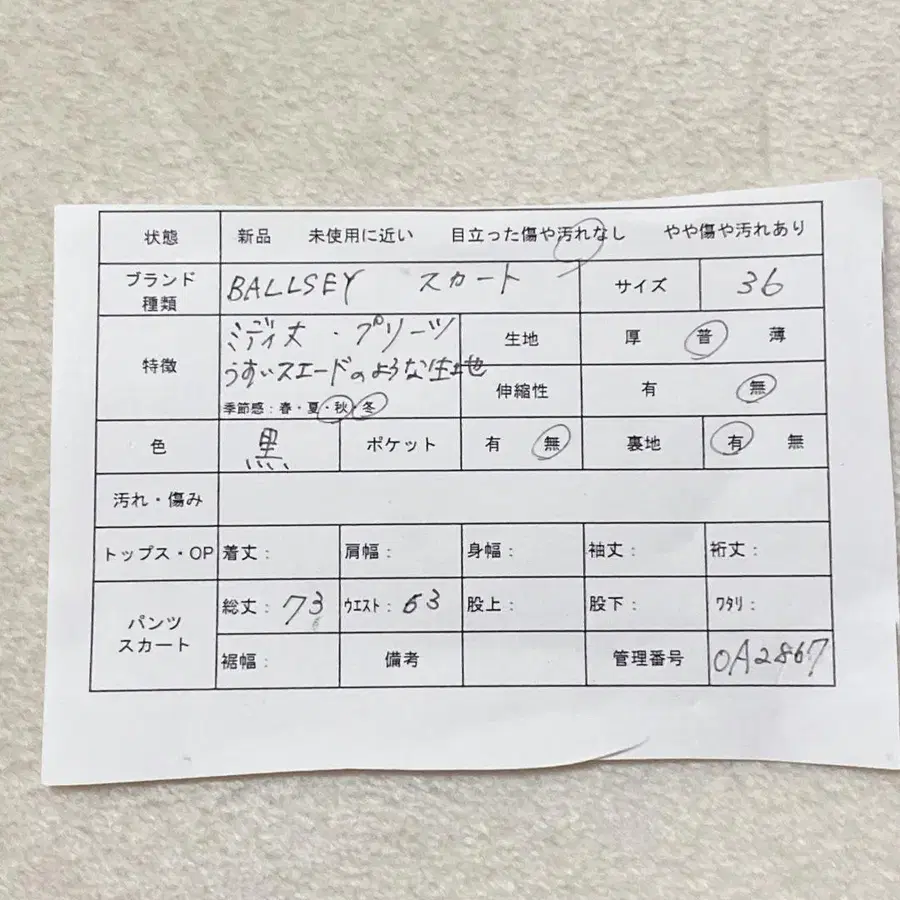 状態 新品 未使用に近い 目立った傷や汚れなし やや傷や汚れあり
ブランド 種類 BALLSEY スカート サイズ 36
特徴 ミディ丈・プリーツ 生地 厚 普 薄
うすいスエードのような生地
季節感：春・夏・秋・冬 伸縮性 有 無
色 黒 ポケット 有 無 裏地 有 無
汚れ・傷み
トップス・OP 着丈： 肩幅： 身幅： 袖丈： 裄丈：
パンツ スカート 総丈：73 ウエスト：63 股上： 股下： ワタリ：
裾幅： 備考 管理番号 OA2867